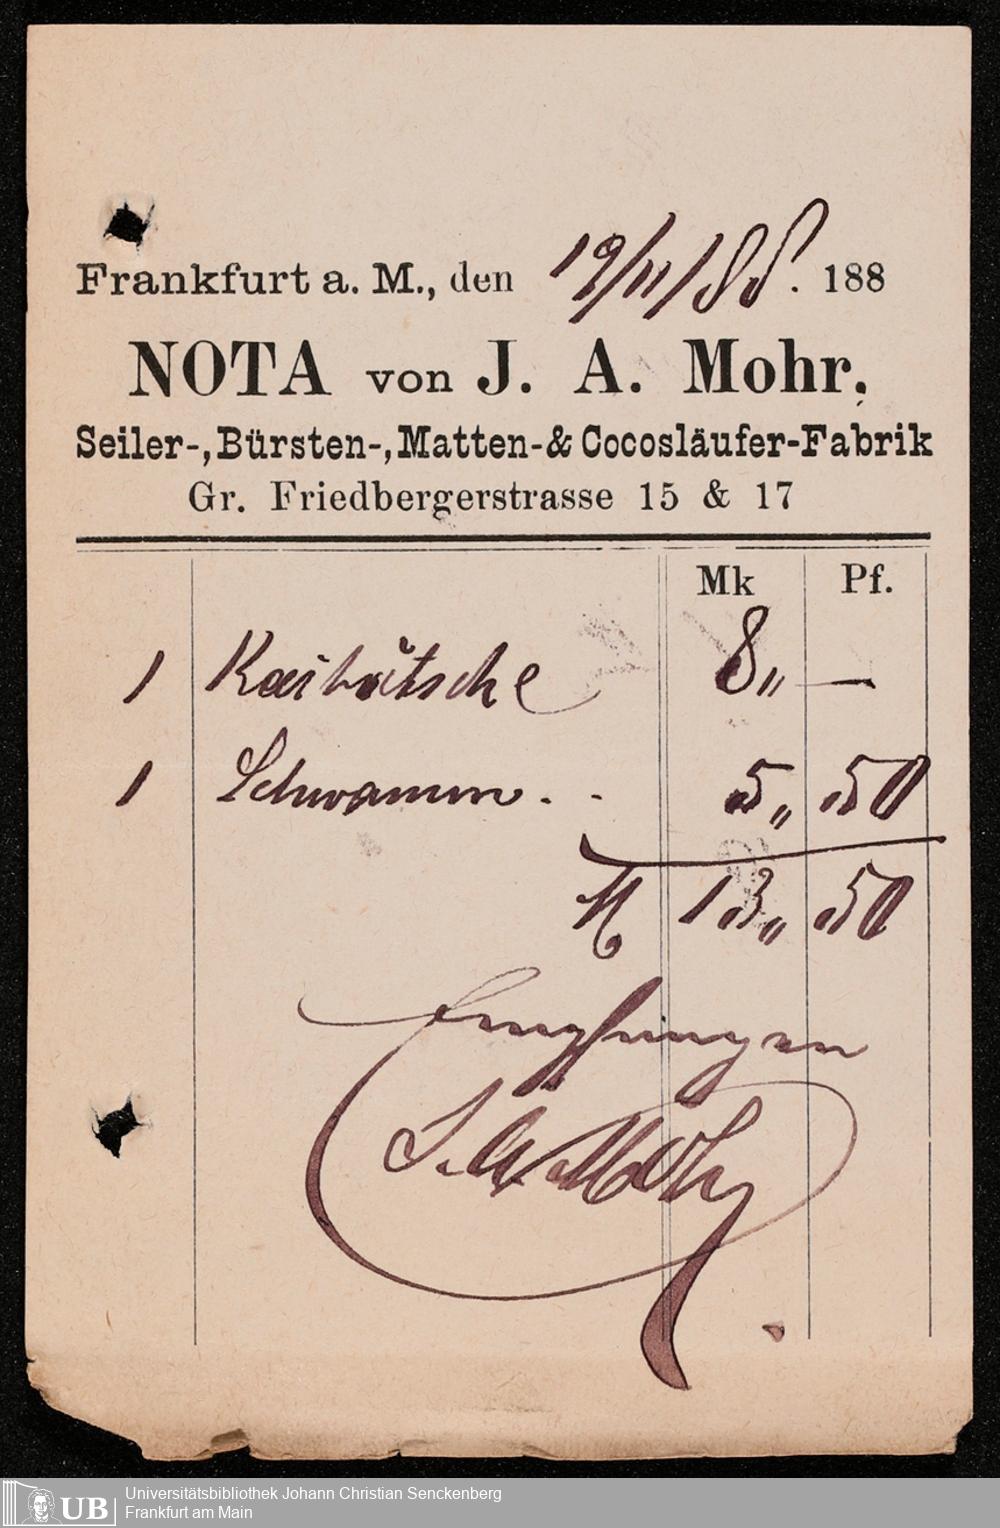 Frankfurt a. M., den 19/11/88. 188
NOTA von J. A. Mohr.
Seiler-, Bürsten-, Matten- & Cocosläufer-Fabrik
Gr. Friedbergerstrasse 15 & 17
Mk Pf.
1 Kartätsche 8,, —
1 Schwamm . . 5,, 50
M 13,, 50
Empfangen
J. A. Mohr
Universitätsbibliothek Johann Christian Senckenberg
UB
Frankfurt am Main